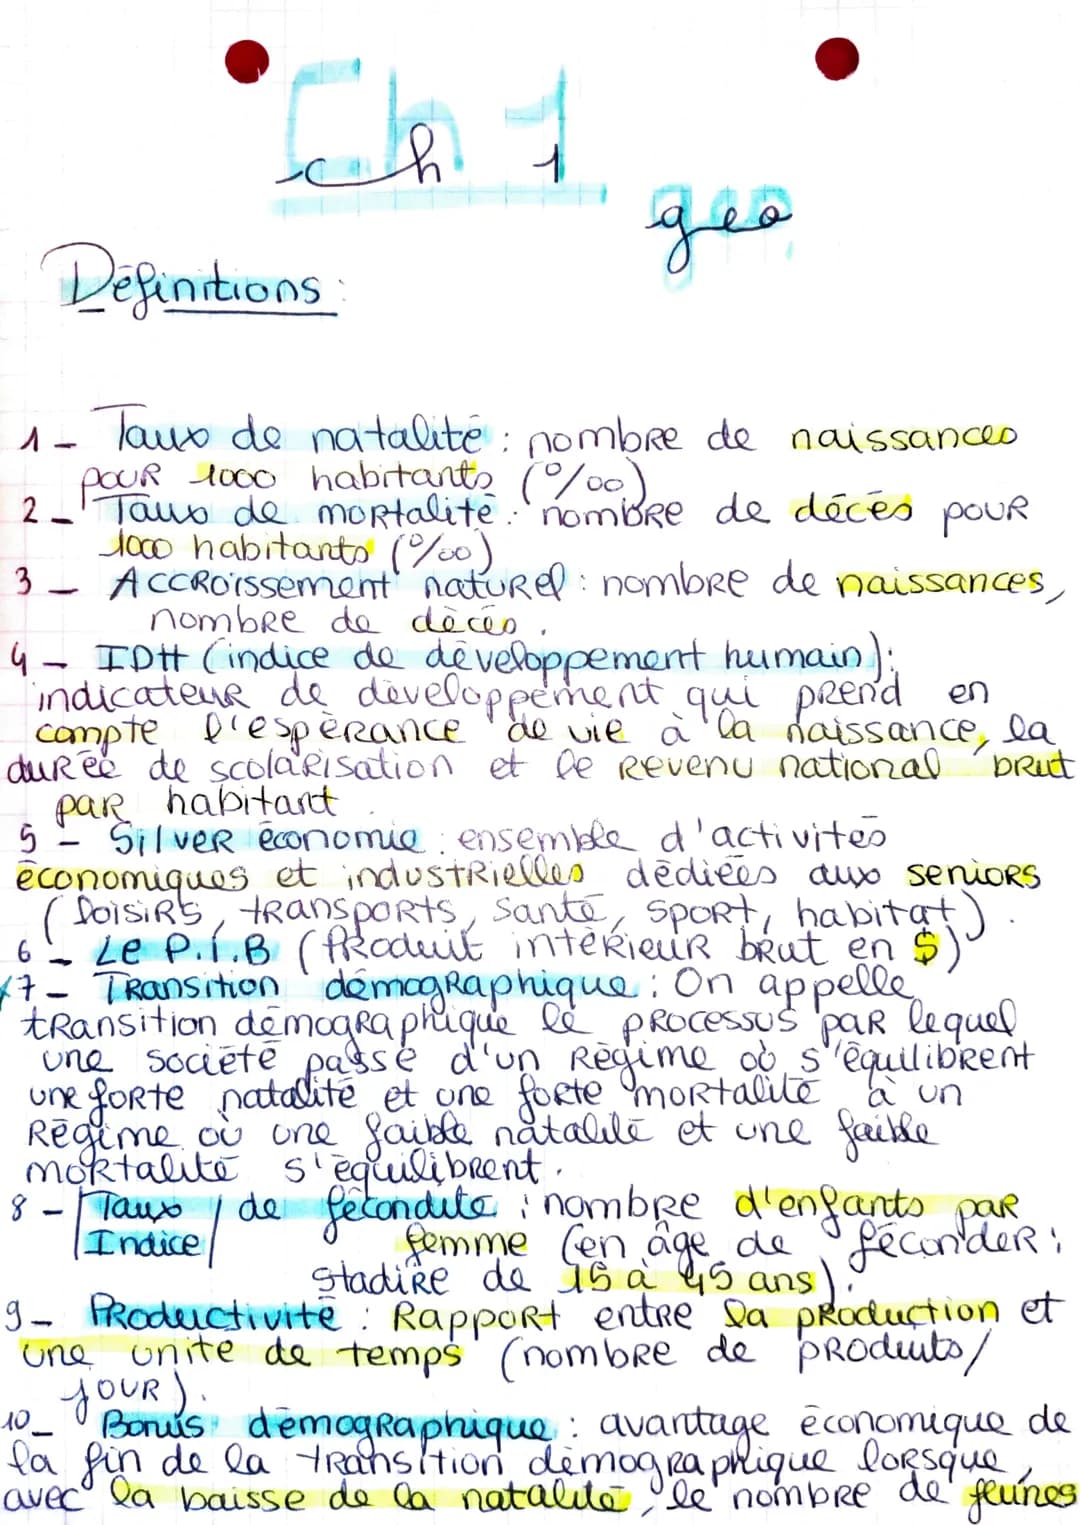 Ch 1
geo
Définitions :
1 - Taux de natalité : nombre de naissances
pour 1000 habitants (‰)
2 - Taux de mortalité : nombre de décès pour
1000 habitants (‰)
3 - Accroissement naturel : nombre de naissances,
nombre de décès.
4 - IDH (indice de développement humain) :
indicateur de développement qui prend en
compte l'espérance de vie à la naissance, la
durée de scolarisation et le revenu national brut
par habitant
5 - Silver économie : ensemble d'activités
économiques et industrielles dédiées aux seniors
(loisirs, transports, santé, sport, habitat).
6 - Le P.I.B (Produit intérieur brut en $)
7 - Transition démographique : On appelle
transition démographique le processus par lequel
une société passe d'un Régime où s'équilibrent
une forte natalité et une forte mortalité à un
Régime où une faible natalité et une faible
mortalité s'équilibrent.
8 - Taux / de fécondité : nombre d'enfants par
Indice / femme (en âge de féconder :
stadire de 15 à 45 ans).
9 - Productivité : Rapport entre la production et
une unité de temps (nombre de produits/
jour).
10 - Bonus démographique : avantage économique de
la fin de la transition démographique lorsque,
avec la baisse de la natalité, le nombre de jeunes